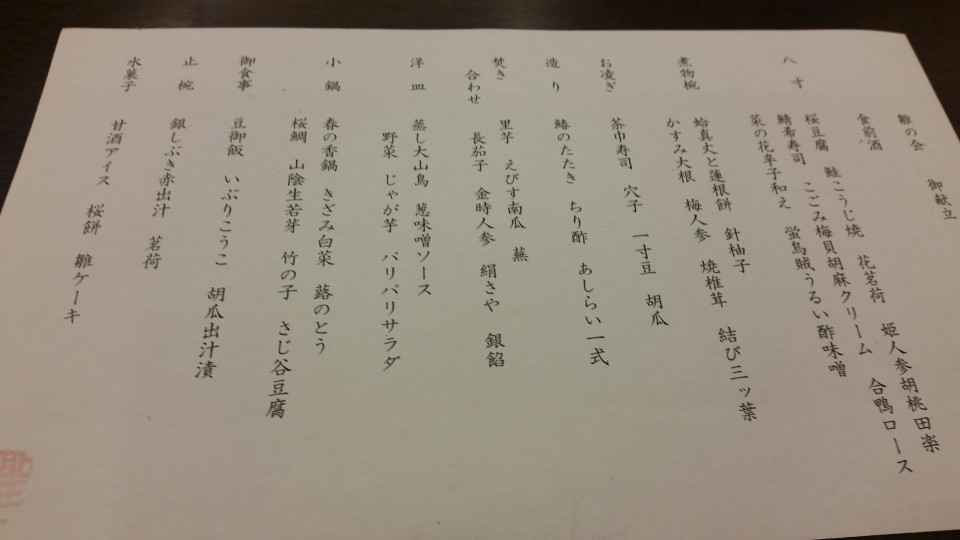 御献立
雛の会
食前酒
八寸
桜豆腐 鮭こうじ焼 花茗荷 姫人参胡桃田楽
鯖希寿司 こごみ梅貝胡麻クリーム 合鴨ロース
菜の花辛子和え 蛍烏賊うるい酢味噌
煮物椀
蛤真丈と蓮根餅 針柚子
かすみ大根 梅人参 焼椎茸 結び三ッ葉
お凌ぎ
茶巾寿司 穴子 一寸豆 胡瓜
造り
鰆のたたき ちり酢 あしらい一式
焚き合わせ
里芋 えびす南瓜 蕪
長茄子 金時人参 絹さや 銀餡
洋皿
蒸し大山鳥 葱味噌ソース
野菜 じゃが芋 パリパリサラダ
小鍋
春の香鍋 きざみ白菜 蕗のとう
桜鯛 山陰生若芽 竹の子 さじ谷豆腐
御食事
豆御飯 いぶりこうこ 胡瓜出汁漬
止椀
銀しぶき赤出汁 茗荷
水菓子
甘酒アイス 桜餅 雛ケーキ